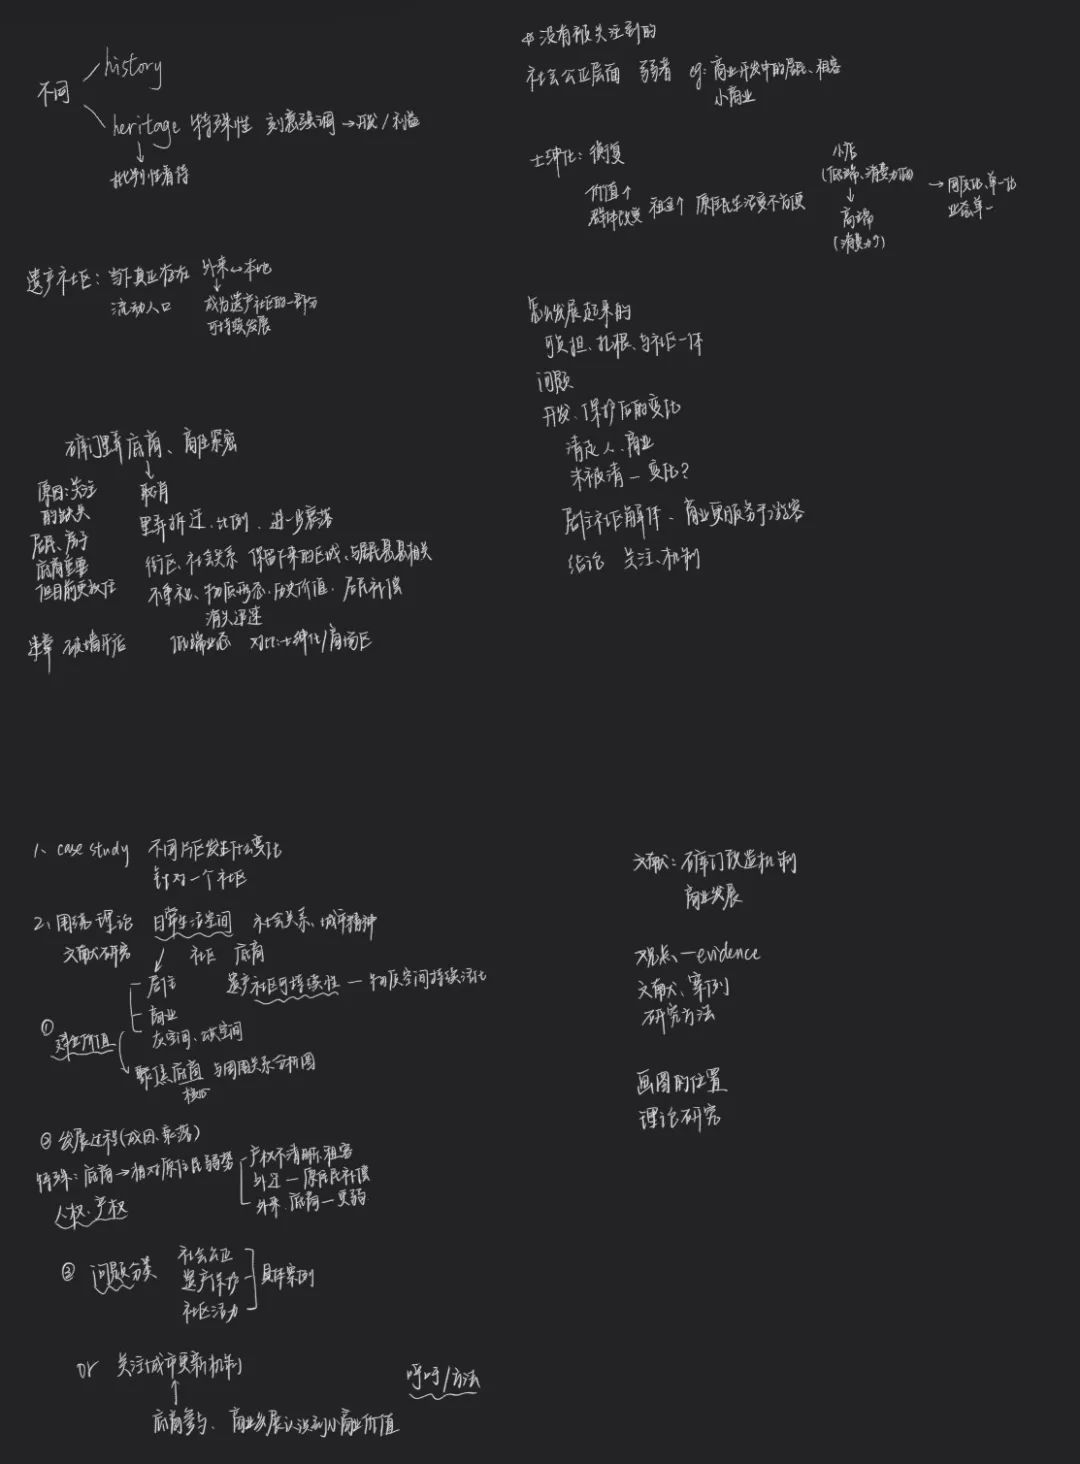 不同
history
heritage 特殊性 刻意强调 → 开发/利益
批判性看待
遗产社区：当下真正存在 外来→本地
流动人口 成为遗产社区的一部分
可持续发展
石库门里弄底商、商住紧密
原因：关注
的缺失
居民、房子
底商重要
但目前更被压
取消
里弄拆迁、比例、进一步衰落
街区、社会关系 保留下来的区域、与居民息息相关
不重视、物质形态、历史价值、居民补偿
消失迅速
违章 破墙开店 低端业态 对比：士绅化/商场区
# 没有被关注到的
社会公正层面 弱者 eg：商业开发中的居民、租客
小商业
士绅化：衡复
价值↑
群体改变 租金↑ 原住民生活变不方便
小店
(低端、消费力弱)
↓
高端
(消费力↑)
→ 同质化、单一化
业态单一
怎么发展起来的
可负担、扎根、与社区一体
问题
开发、保护后的变化
清走人、商业
未被清 — 变化？
居住社区解体、商业更服务于游客
结论 关注、机制
1、case study 不同片区发生什么变化
针对一个社区
2、用场理论 日常生活空间 社会关系、城市精神
文献研究 社区 底商
居住 遗产社区可持续性 — 物质空间持续活化
商业
灰空间、碎空间
①
建立价值
聚焦底商 与周围关系分析图
核心
② 发展过程(成因、衰落)
特殊：底商→相对原住民弱势
产权不清晰、租客
外迁 — 原住民补偿
外来、底商 — 更弱
人权、产权
③ 问题分类
社会公正
遗产保护
社区活力
具体案例
or 关注城市更新机制
↑
底商参与、商业发展认识到小商业价值
呼吁/方法
文献：石库门改造机制
商业发展
观点 — evidence
文献、案例
研究方法
画图的位置
理论研究